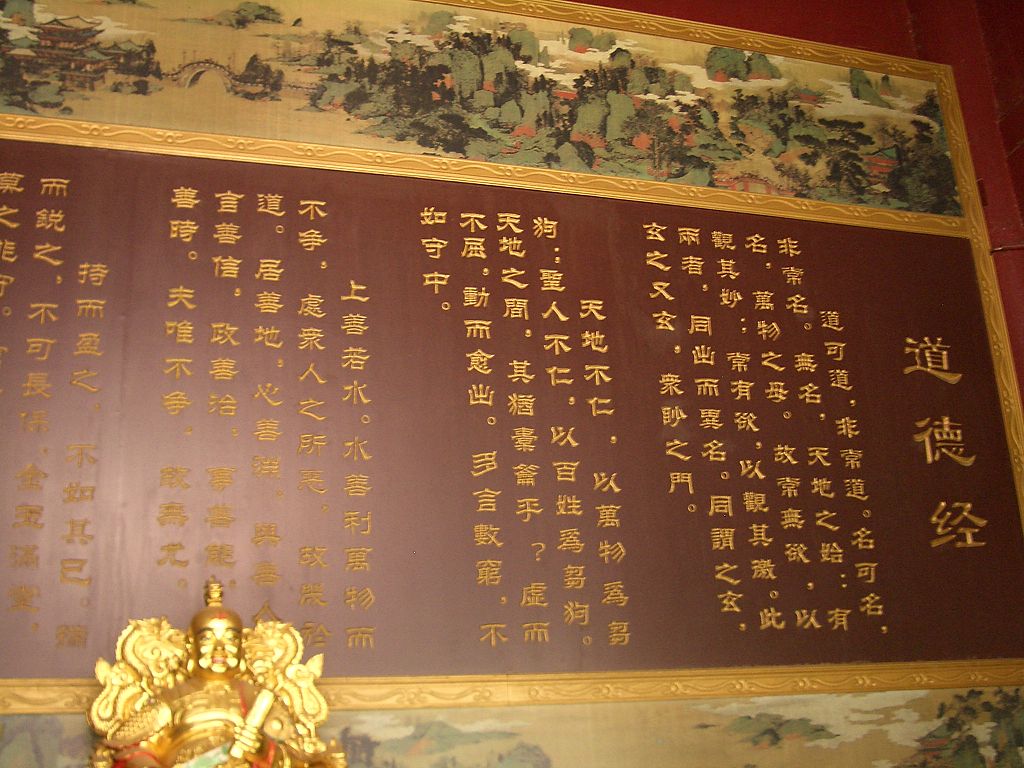 道德经
道可道，非常道。名可名，
非常名。無名，天地之始：有
名，萬物之母。故常無欲，以
觀其妙：常有欲，以觀其徼。此
兩者，同出而異名。同謂之玄，
玄之又玄，衆眇之門。
天地不仁，以萬物爲芻
狗：聖人不仁，以百姓爲芻狗。
天地之間，其猶橐籥乎？虛而
不屈，動而愈出。多言數窮，不
如守中。
上善若水。水善利萬物而
不争，處衆人之所惡，故幾於
道。居善地，心善淵。與善人
言善信，政善治，事善能，
善時。夫唯不争，故無尤。
持而盈之，不如其已。揣
而銳之，不可長保，金玉滿堂，
莫之能守。